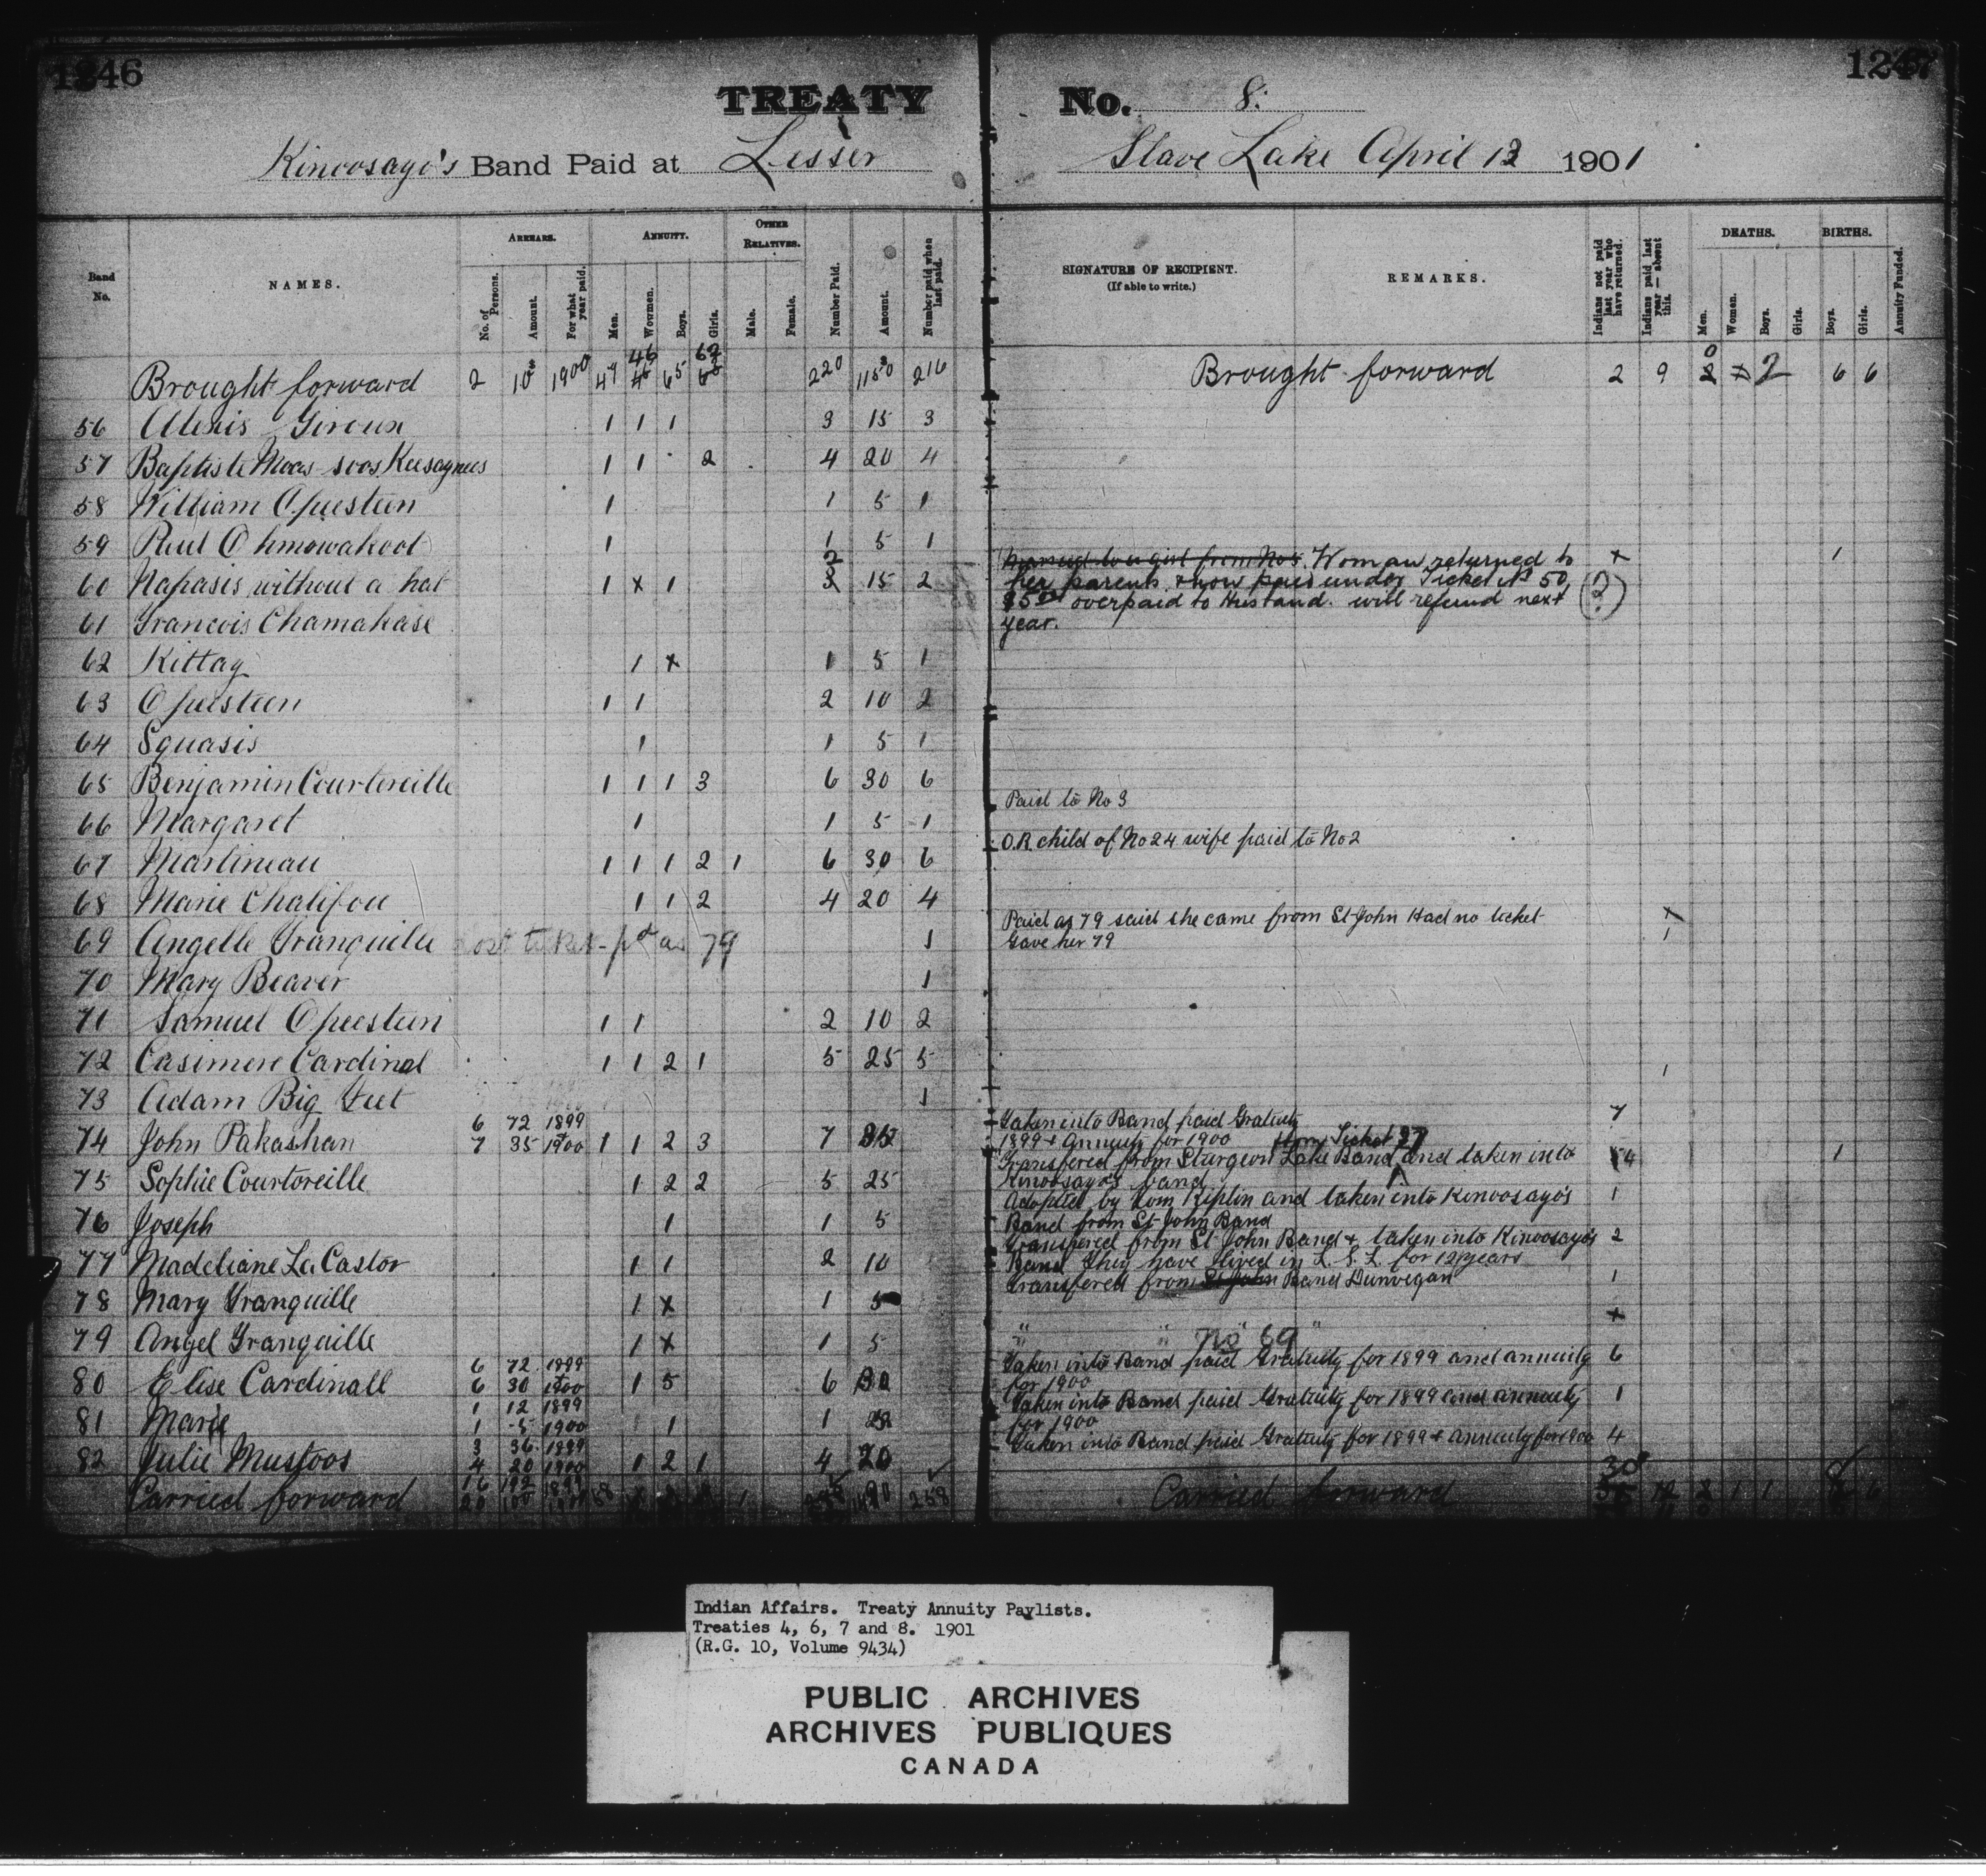 1246
1247
TREATY No. 8.
Kinoosayo's Band Paid at Lesser Slave Lake April 13 1901
Band No.
NAMES.
ARREARS.
No. of Persons.
Amount.
For what year paid.
ANNUITY.
Men.
Women.
Boys.
Girls.
OTHER RELATIVES.
Male.
Female.
Number Paid.
Amount.
Number paid when last paid.
SIGNATURE OF RECIPIENT.
(If able to write.)
REMARKS.
Indians not paid last year who have returned.
Indians paid last year — absent this.
DEATHS.
Men.
Women.
Boys.
Girls.
BIRTHS.
Boys.
Girls.
Annuity Funded.
Brought forward 2 10 1900 47 46 65 220 1150 216 Brought forward 2 9 2 6 6
56 Alexis Giroux 1 1 1 3 15 3
57 Baptiste Moos-soos Keesaynees 1 1 2 4 20 4
58 William Opeesteen 1 1 5 1
59 Paul Ohmowahoot 1 1 5 1
60 Napasis without a hat 1 x 1 2 15 2 Married to a girl from No 5. Woman returned to x 1
her parents & now paid under Ticket No 50 (2)
$5.00 overpaid to Husband. will refund next
year.
61 Francois Chamakase
62 Kittay 1 x 1 5 1
63 Opeesteen 1 1 2 10 2
64 Squasis 1 1 5 1
65 Benjamin Courtoreille 1 1 1 3 6 30 6
66 Margaret 1 1 5 1 Paid to No 3
67 Martineau 1 1 1 2 1 6 30 6 O.R. child of No 24 wife paid to No 2
68 Marie Chalifou 1 1 2 4 20 4
69 Angelle Tranquille Lost ticket - pd as 79 1 Paid as 79 said she came from St John Had no ticket x
Gave her 79 1
70 Mary Beaver 1
71 Samuel Opeesteen 1 1 2 10 2
72 Casimere Cardinal 1 1 2 1 5 25 5
73 Adam Big Feet 1 1
74 John Pakashan 6 72 1899
7 35 1900 1 1 2 3 7 35 Taken into Band paid Gratuity 7
1899 & Annuity for 1900
75 Sophie Courtoreille 1 2 2 5 25 Transfered from Sturgeon Lake Band from Ticket 37 and taken into 1
Kinoosayo's band
76 Joseph 1 1 5 Adopted by Tom Kiplin and taken into Kinoosayo's 1
Band from St John Band
77 Madeliane La Castor 1 1 2 10 Transfered from St John Band & taken into Kinoosayo's 2
Band They have lived in L. S. L. for 12 years
78 Mary Tranquille 1 x 1 5 Transfered from St John Band Dunvegan 1
79 Angel Tranquille 1 x 1 5 " " No 69 " x
80 Elise Cardinall 6 72 1899
6 30 1900 1 5 6 30 Taken into Band paid Gratuity for 1899 and annuity 6
for 1900
81 Marie 1 12 1899
1 5 1900 1 1 Taken into Band paid Gratuity for 1899 and annuity 1
for 1900
82 Julie Mustoos 3 36 1899
4 20 1900 1 2 1 4 20 Taken into Band paid Gratuity for 1899 & annuity for 1900 4
Carried forward 16 192 1899
20 100 1900 58 1 258 Carried forward 30 12 2 1 1 8 6
Indian Affairs. Treaty Annuity Paylists.
Treaties 4, 6, 7 and 8. 1901
(R.G. 10, Volume 9434)
PUBLIC ARCHIVES
ARCHIVES PUBLIQUES
CANADA